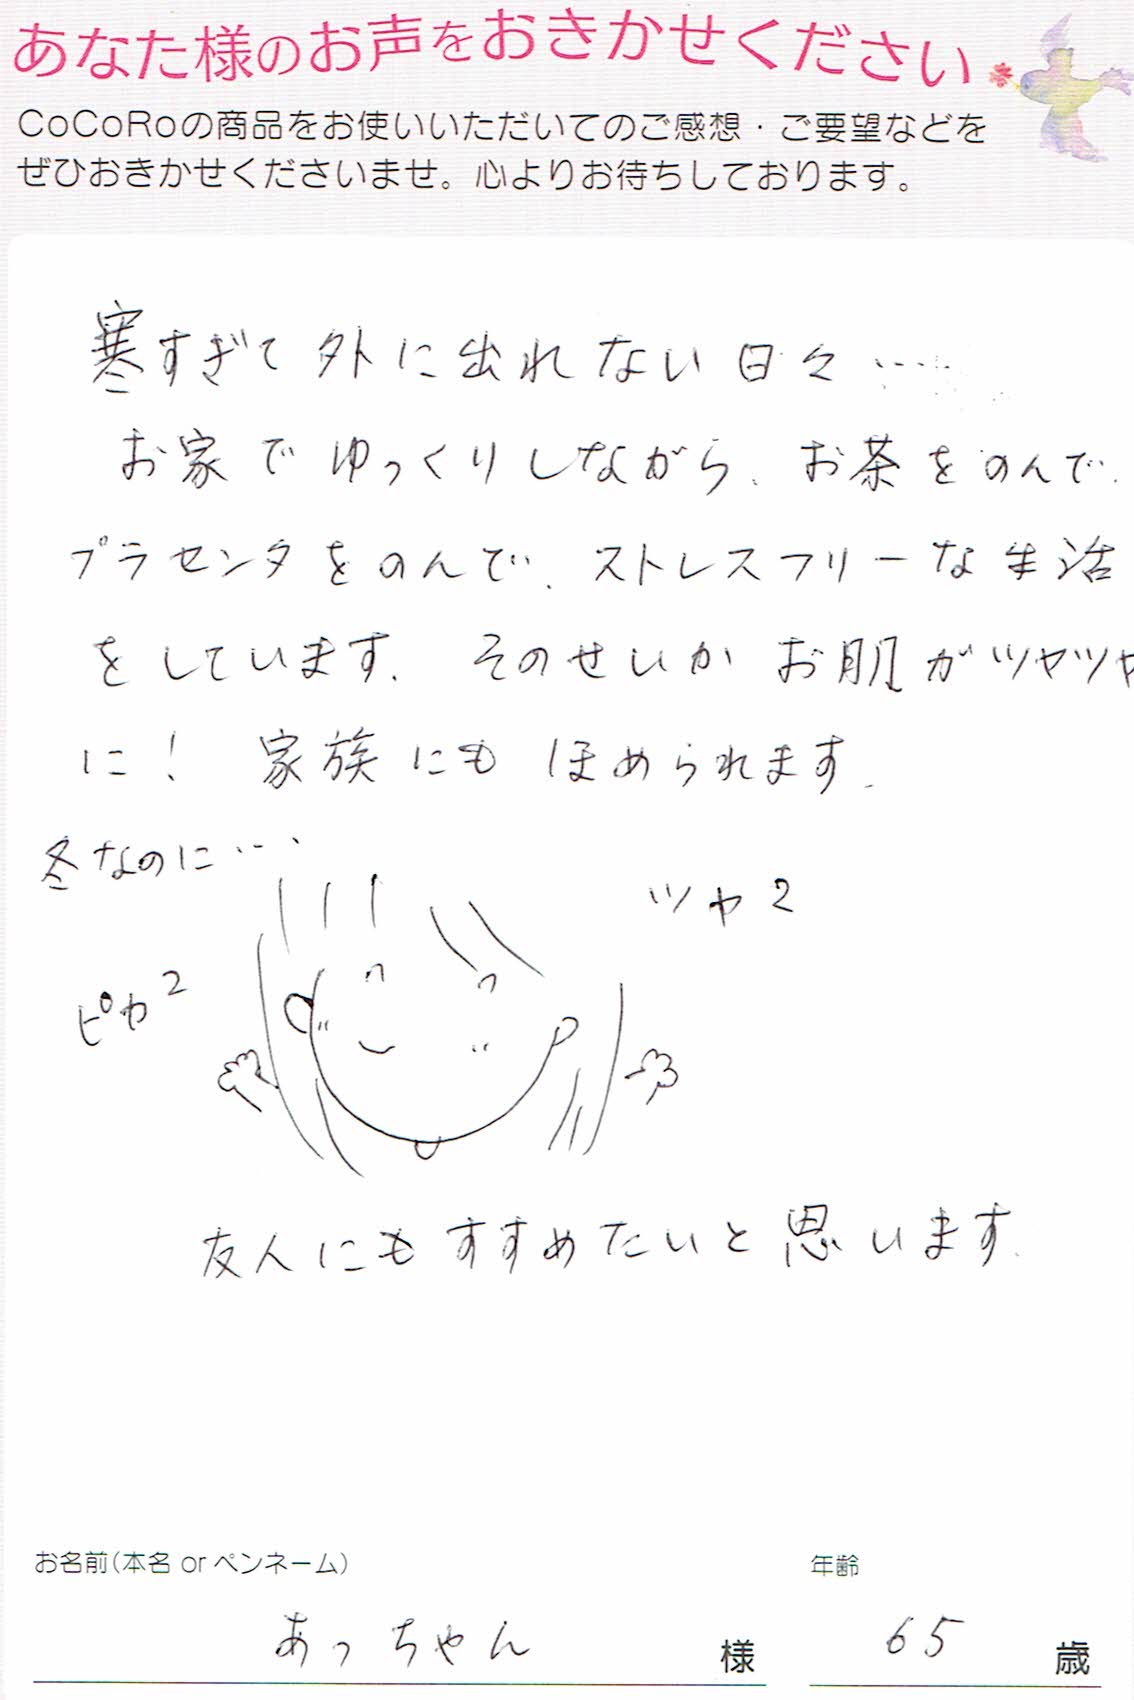 あなた様のお声をおきかせください
CoCoRoの商品をお使いいただいてのご感想・ご要望などを
ぜひおきかせくださいませ。心よりお待ちしております。
寒すぎて外に出れない日々……
お家でゆっくりしながら、お茶をのんで、
プラセンタをのんで、ストレスフリーな生活
をしています。そのせいかお肌がツヤツヤ
に！ 家族にもほめられます。
冬なのに…
ツヤ2
ピカ2
友人にもすすめたいと思います。
お名前(本名 or ペンネーム) 年齢
あっちゃん 様 65 歳